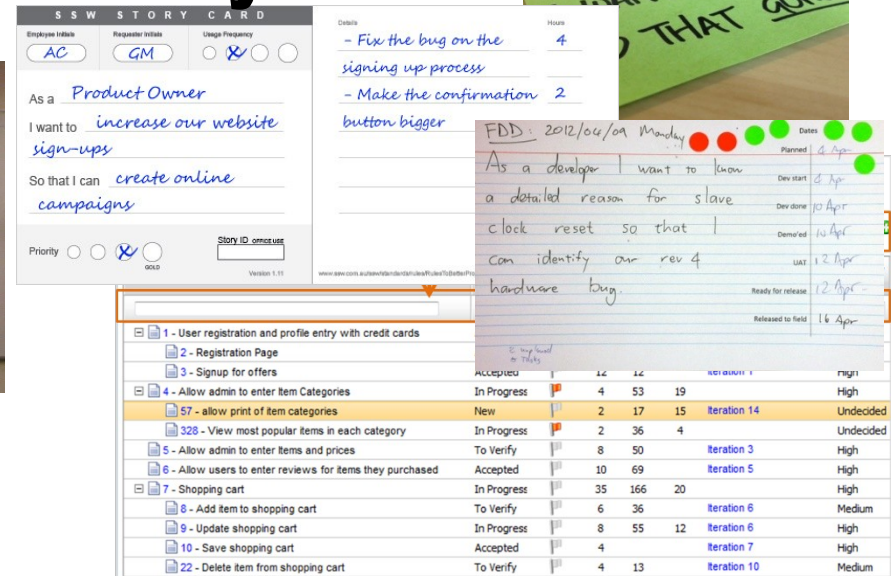 SSW STORY CARD
Employee Initials Requester Initials Usage Frequency
AC GM
As a Product Owner
I want to increase our website
sign-ups
So that I can create online
campaigns
Priority
GOLD
Story ID OFFICE USE
Version 1.11
Details Hours
- Fix the bug on the 4
signing up process
- Make the confirmation 2
button bigger
THAT
FDD: 2012/04/09 Monday
As a developer I want to know
a detailed reason for slave
clock reset so that I
can identify our rev 4
hardware bug.
Dates
Planned 4 Apr
Dev start 4 Apr
Dev done 10 Apr
Demo'ed 10 Apr
UAT 12 Apr
Ready for release 12 Apr
Released to field 16 Apr
1 - User registration and profile entry with credit cards
2 - Registration Page
3 - Signup for offers Accepted 12 12 Iteration 1 High
4 - Allow admin to enter Item Categories In Progress 4 53 19 High
57 - allow print of item categories New 2 17 15 Iteration 14 Undecided
328 - View most popular items in each category In Progress 2 36 4 Undecided
5 - Allow admin to enter Items and prices To Verify 8 50 Iteration 3 High
6 - Allow users to enter reviews for items they purchased Accepted 10 69 Iteration 5 High
7 - Shopping cart In Progress 35 166 20 High
8 - Add item to shopping cart To Verify 6 36 Iteration 6 Medium
9 - Update shopping cart In Progress 8 55 12 Iteration 6 High
10 - Save shopping cart Accepted 4 Iteration 7 High
22 - Delete item from shopping cart To Verify 4 13 Iteration 10 Medium